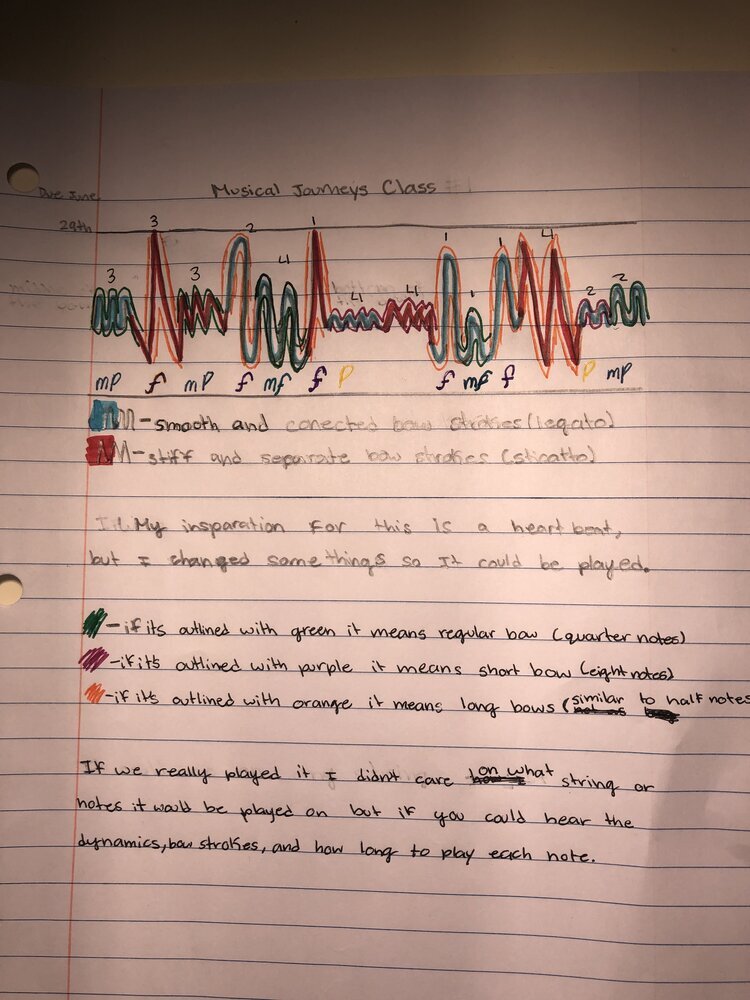 Musical Journeys Class #1
Due June
29th
3 3 2 4 1 4 4 1 1 1 4 2 2
mp f mp f mf f p f mf f p mp
- smooth and conected bow strokes (legato)
- stiff and separate bow strokes (sticatto)
My insparation for this is a heart beat,
but I changed some things so it could be played.
- if its outlined with green it means regular bow (quarter notes)
- if it's outlined with purple it means short bow (eight notes)
- if it's outlined with orange it means long bows (similar to half notes
If we really played it I didn't care on what string or
notes it would be played on but if you could hear the
dynamics, bow strokes, and how long to play each note.